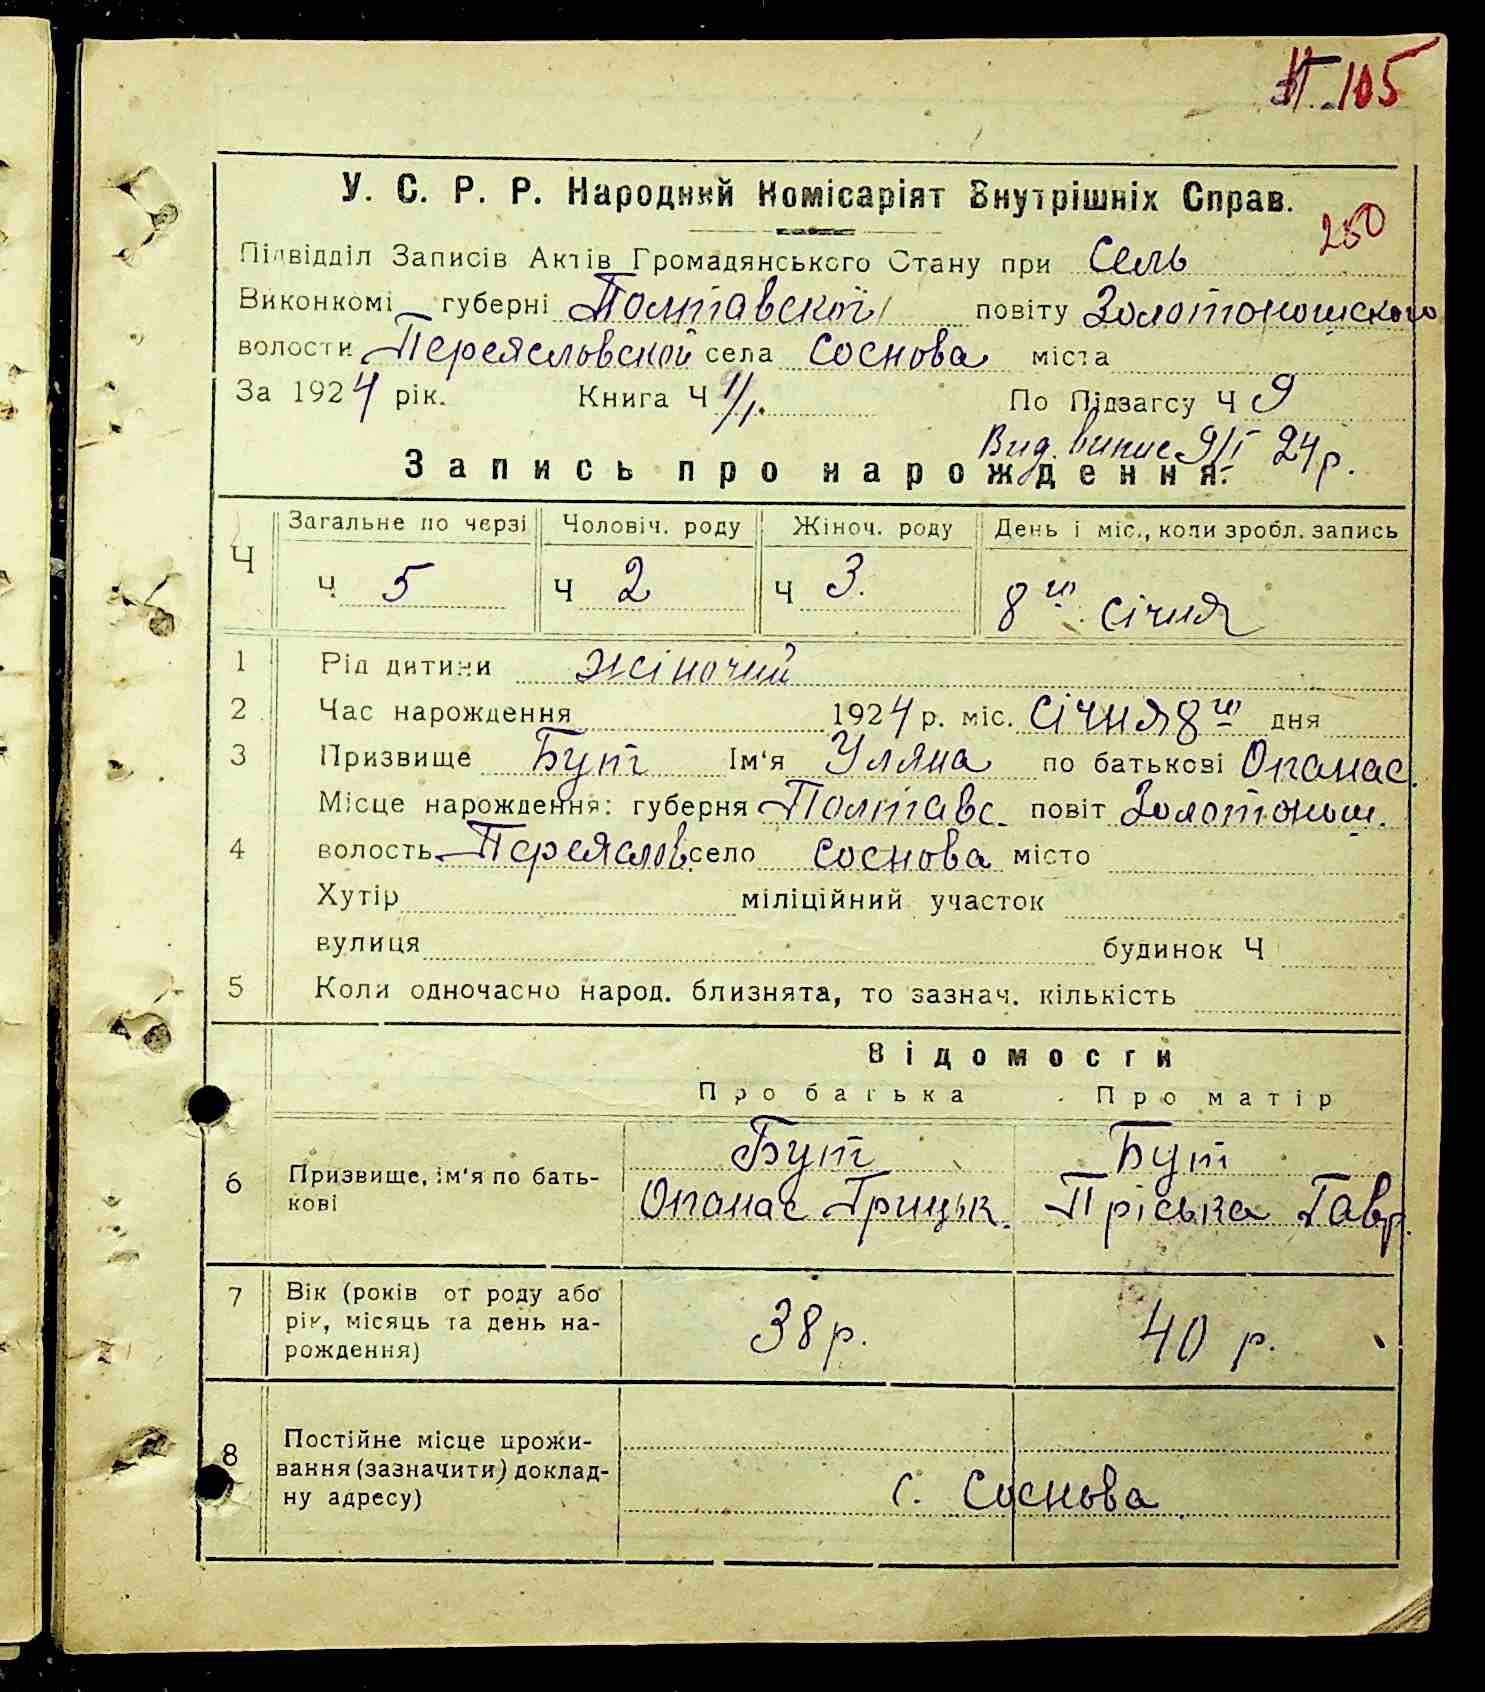 105
У. С. Р. Р. Народний Комісаріят Внутрішніх Справ.
250
Підвідділ Записів Актів Громадянського Стану при Сель
Виконкомі губерні Полтавскої повіту Золотоношского
волости Переясловской села Соснова міста
За 1924 рік. Книга Ч 1/1. По Підзагсу Ч 9
Вид. випис 9/I 24 р.
Запись про нарождення.
Загальне по черзі Чоловіч. роду Жіноч. роду День і міс., коли зробл. запись
Ч
Ч 5 Ч 2 Ч 3. 8го січня
1 Рід дитини жіночий
2 Час нарождення 1924 р. міс. січня 8го дня
3 Призвище Бут Ім'я Уляна по батькові Опанас.
Місце нарождення: губерня Полтавс. повіт Золотонош.
4 волость Переяслов. село соснова місто
Хутір міліційний участок
вулиця будинок Ч
5 Коли одночасно народ. близнята, то зазнач. кількість
Відомости
Про батька Про матір
Бут Бут
6 Призвище, ім'я по бать-
кові
Опанас Грицьк. Пріська Гавр.
7 Вік (років от роду або
рік, місяць та день на-
рождення)
38 р. 40 р.
8 Постійне місце прожи-
вання (зазначити) доклад-
ну адресу)
с. Соснова